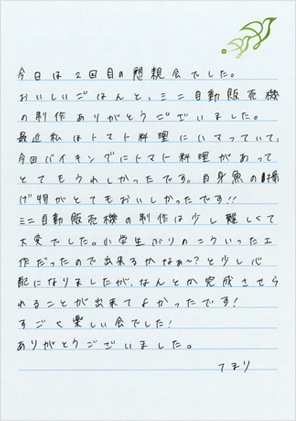 今日は2回目の懇親会でした。
おいしいごはんと、ミニ自動販売機
の制作ありがとうございました。
最近私はトマト料理にハマっていて、
今回バイキングにトマト料理があって
とてもうれしかったです。白身魚の揚
げ物がとてもおいしかったです!!
ミニ自動販売機の制作は少し難しくて
大変でした。小学生ぶりのこういった工
作だったので出来るかなぁ~?と少し心
配になりましたが、なんとか完成させら
れることが出来てよかったです!
すごく楽しい会でした!
ありがとうございました。